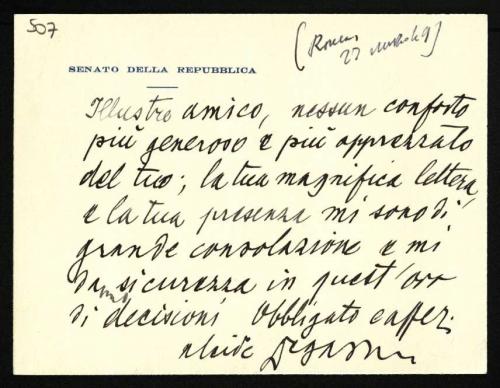 507
[Roma
27 49]
SENATO DELLA REPUBBLICA
Illustre amico, nessun conforto
più generoso e più apprezzato
del tuo; la tua magnifica lettera
e la tua presenza mi sono di
grande consolazione e mi
danno sicurezza in quest'ora
di decisioni Obbligato e affez.
Alcide Degasperi